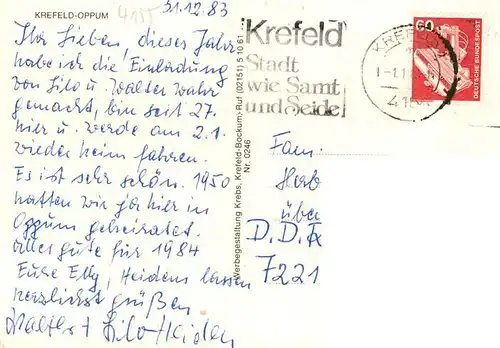 KREFELD-OPPUM
4155
31.12.83
Ihr Lieben, dieses Jahr
habe ich die Einladung
von Lilo u. Walter wahr
gemacht, bin seit 27.
hier u. werde am 2.1.
wieder heim fahren.
Es ist sehr schön. 1950
hatten wir ja hier in
Oppum geheiratet.
alles gute für 1984
Eure Elly, Heidens lassen
herzlichst grüßen
Walter + Lilo Heiden
Werbegestaltung Krebs, Krefeld-Bockum, Ruf (02151) 5 10 61
Nr. 0246
Krefeld
Stadt
wie Samt
und Seide
KREFELD
60
DEUTSCHE BUNDESPOST
Fam.
über
D.D.R
7221